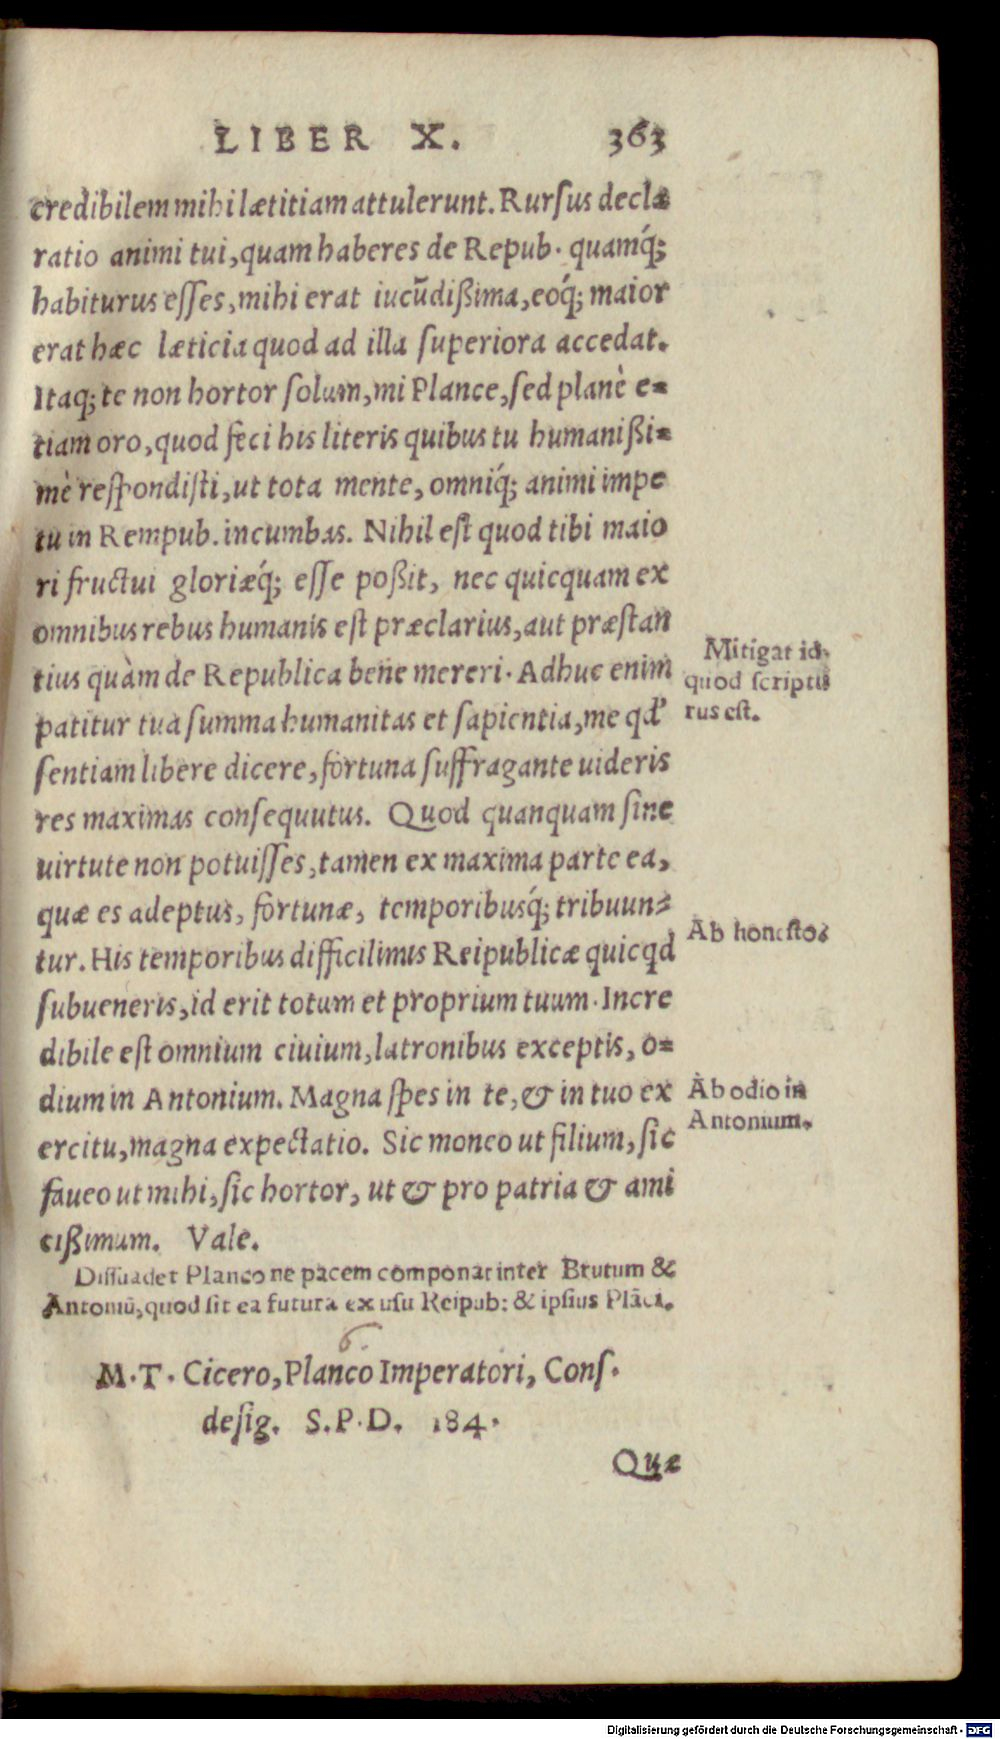 LIBER X. 363
credibilem mihi lætitiam attulerunt. Rursus decla
ratio animi tui, quam haberes de Repub. quamq́;
habiturus esses, mihi erat iucũdißima, eoq́; maior
erat hæc læticia quod ad illa superiora accedat.
Itaq; te non hortor solum, mi Plance, sed planè e=
tiam oro, quod feci his literis quibus tu humanißi=
mè respondisti, ut tota mente, omniq́; animi impe
tu in Rempub. incumbas. Nihil est quod tibi maio
ri fructui gloriæq́; esse poßit, nec quicquam ex
omnibus rebus humanis est præclarius, aut præstan
tius quàm de Republica bene mereri. Adhuc enim
Mitigat id,
quod scriptu
rus est.
patitur tua summa humanitas et sapientia, me qđ
sentiam libere dicere, fortuna suffragante uideris
res maximas consequutus. Quod quanquam sine
uirtute non potuisses, tamen ex maxima parte ea,
quæ es adeptus, fortunæ, temporibusq́; tribuun=
Ab honesto.
tur. His temporibus difficilimis Reipublicæ quicqd
subueneris, id erit totum et proprium tuum. Incre
dibile est omnium ciuium, latronibus exceptis, o=
dium in Antonium. Magna spes in te, & in tuo ex
Ab odio in
Antonium.
ercitu, magna expectatio. Sic moneo ut filium, sic
faueo ut mihi, sic hortor, ut & pro patria & ami
cißimum. Vale.
Dissuadet Planco ne pacem componat inter Brutum &
Antoniũ, quod sit ea futura ex usu Reipub: & ipsius Plãci.
6.
M. T. Cicero, Planco Imperatori, Cons.
desig. S. P. D. 184.
Quæ
Digitalisierung gefördert durch die Deutsche Forschungsgemeinschaft - DFG